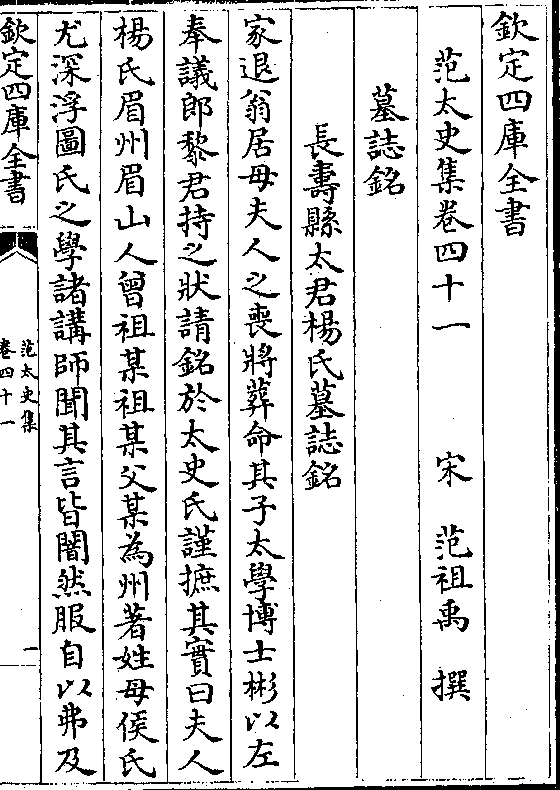 欽定四庫全書
范太史集卷四十一 宋 范祖禹 撰
墓誌銘
長壽縣太君楊氏墓誌銘
家退翁居母夫人之喪將葬命其子太學博士彬以左
奉議郎黎君持之狀請銘於太史氏謹摭其實曰夫人
楊氏眉州眉山人曾祖某祖某父某為州著姓母侯氏
尤深浮圖氏之學諸講師聞其言皆闇然服自以弗及
欽定四庫全書
范太史集
卷四十一
一